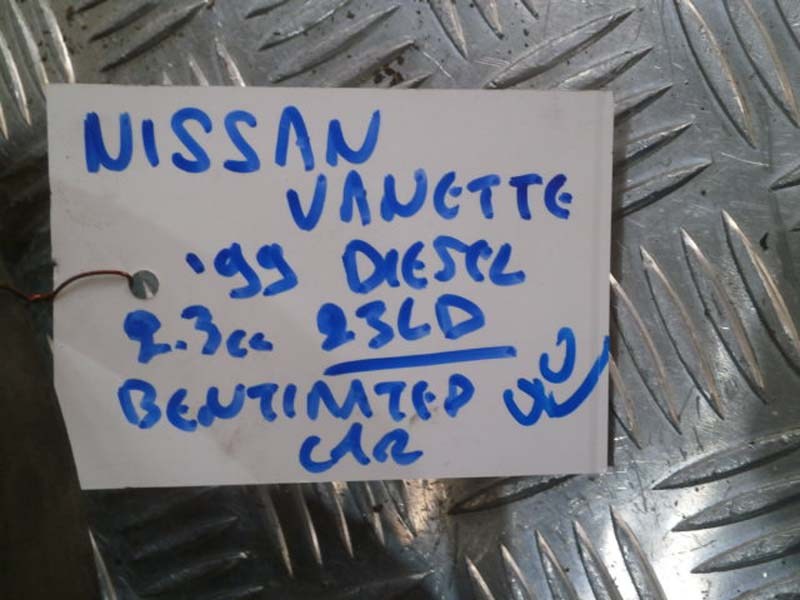 NISSAN
VANETTE
'99 DIESEL
2.3cc 23LD
CAR